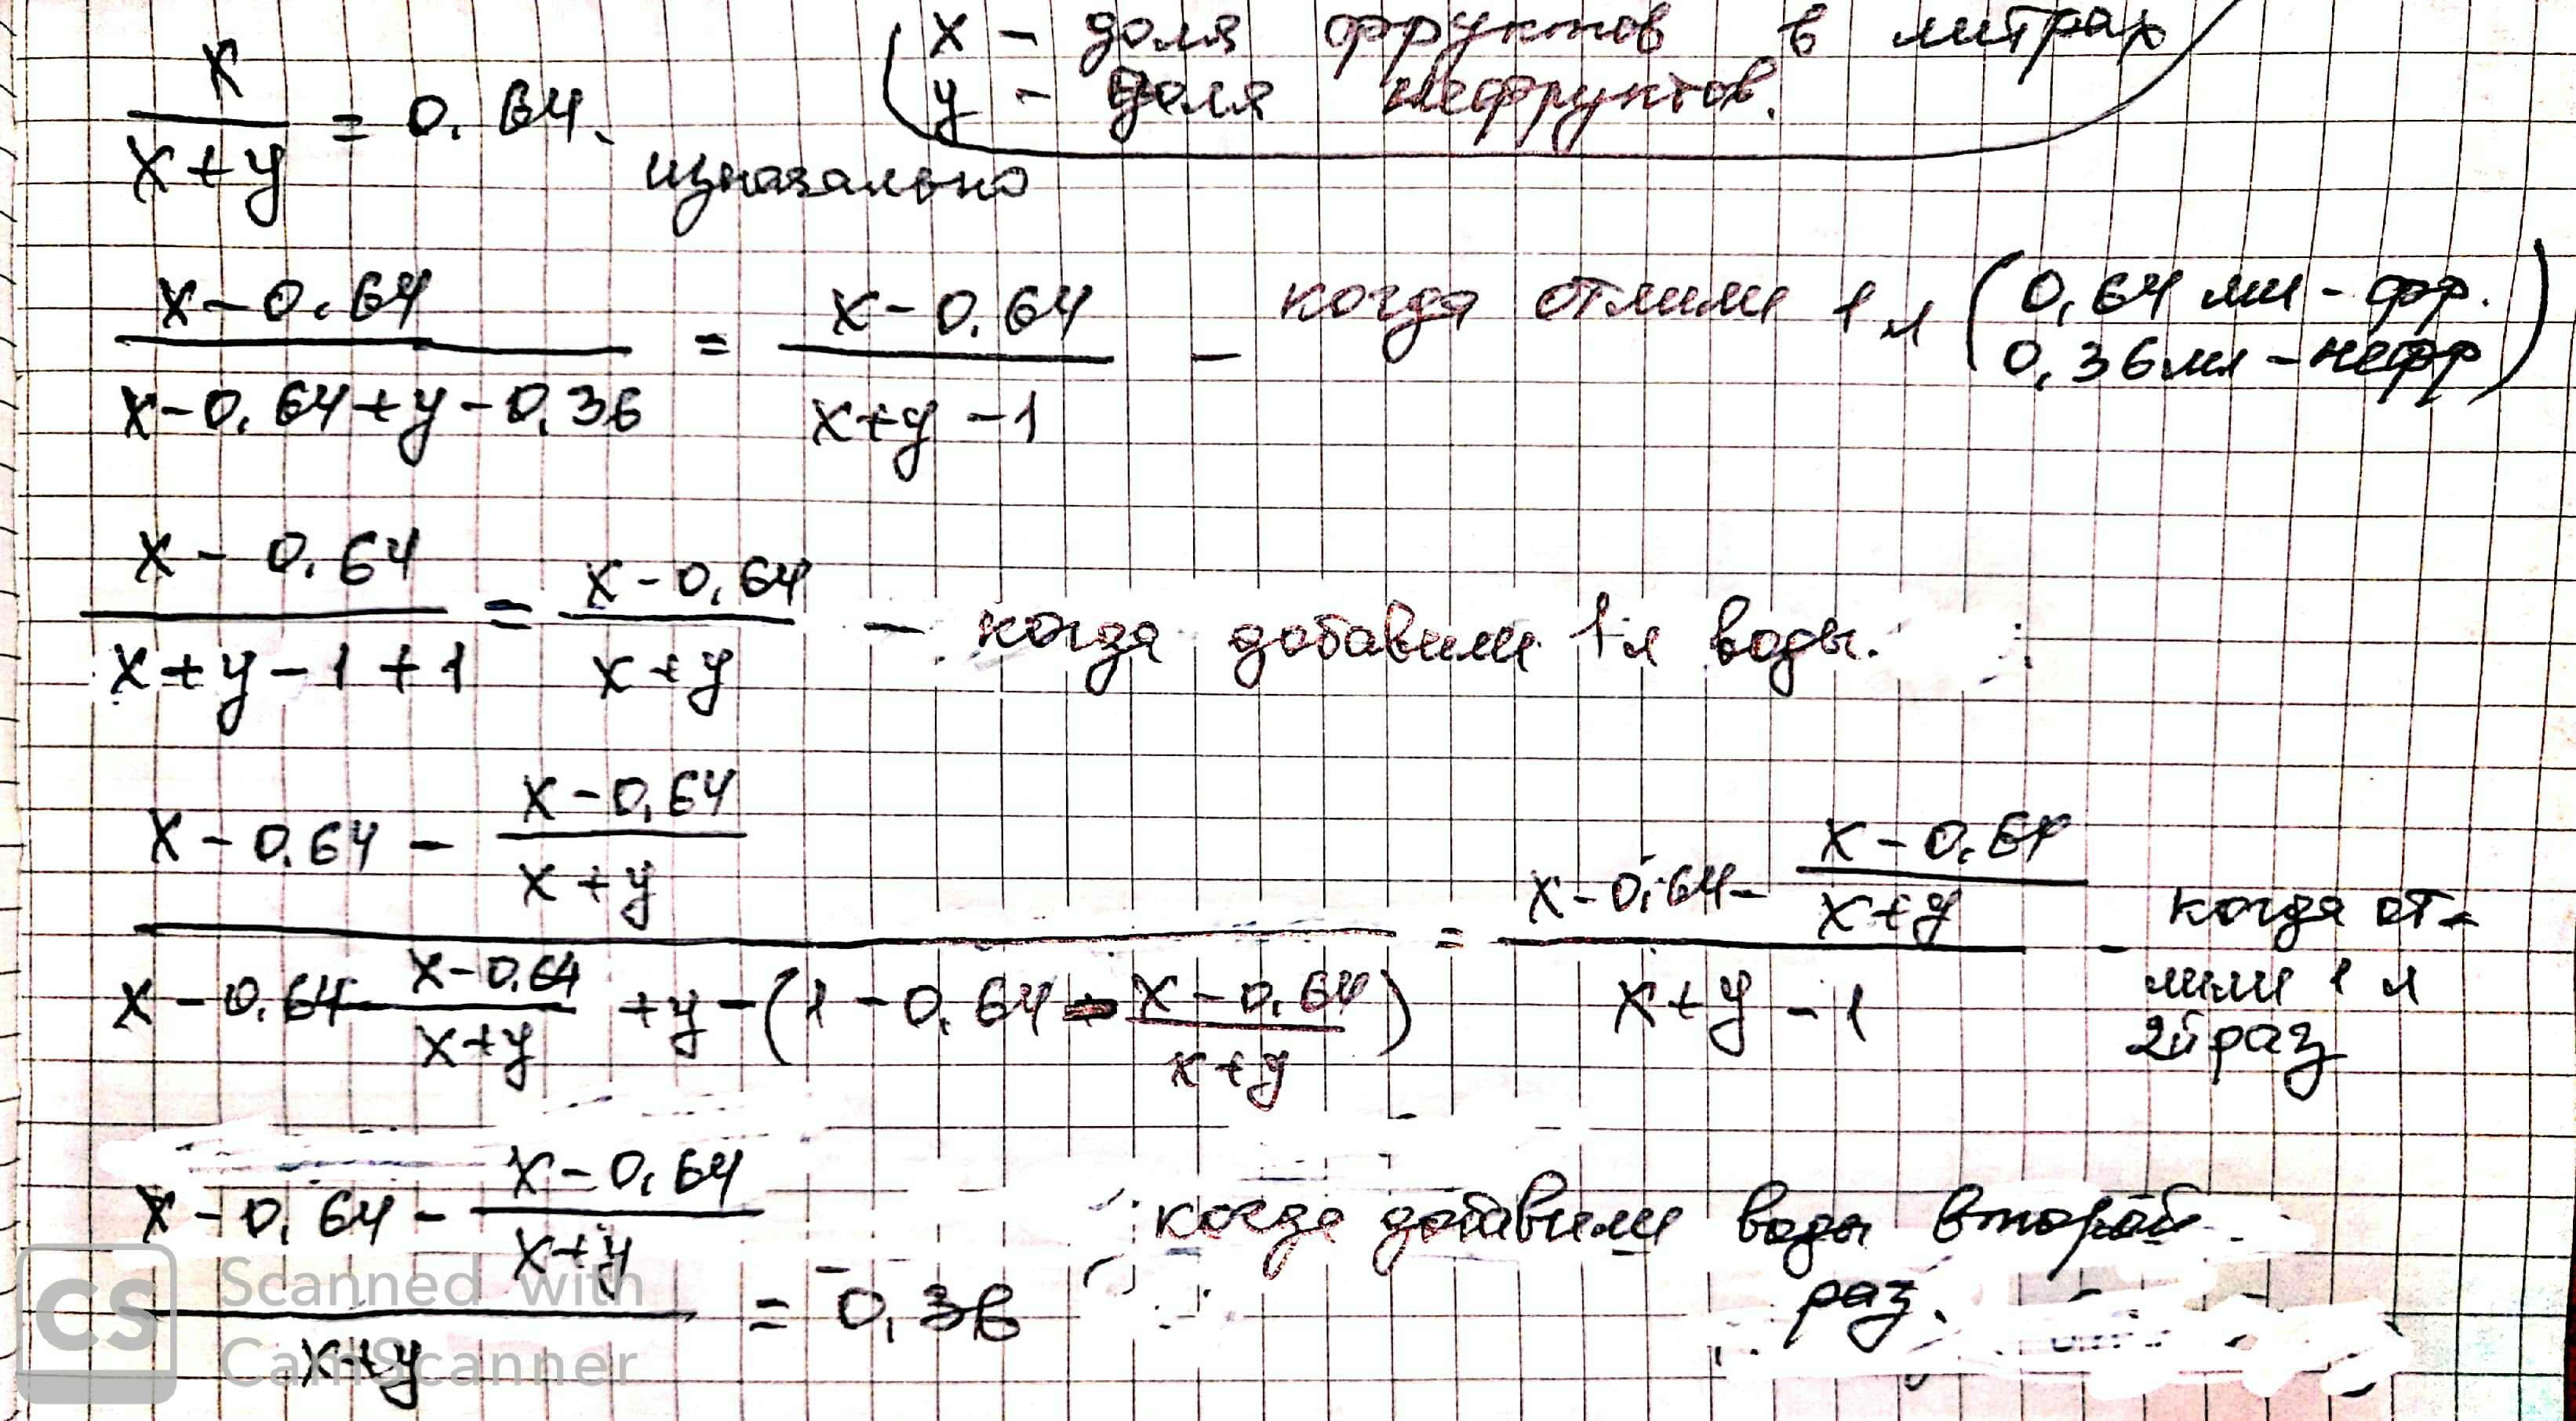 x - доля фруктов в литрах
y - доля нефруктов.
x / (x+y) = 0.64. изначально
(x-0.64) / (x-0.64+y-0.36) = (x-0.64) / (x+y-1) - когда отлили 1 л (0,64 мл - фр. 0,36 мл - нефр)
(x-0.64) / (x+y-1+1) = (x-0.64) / (x+y) - когда добавили 1 л воды.
(x-0.64 - (x-0,64) / (x+y)) / (x-0.64 - (x-0.64) / (x+y) + y-(1-0.64 - (x-0.64) / (x+y))) = (x-0.64- (x-0.64) / (x+y)) / (x+y-1) - когда от-
лили 1 л
2й раз
(x-0.64 - (x-0.64) / (x+y)) / (x+y) = 0,36 когда добавили воды второй
раз.
CS Scanned with
CamScanner